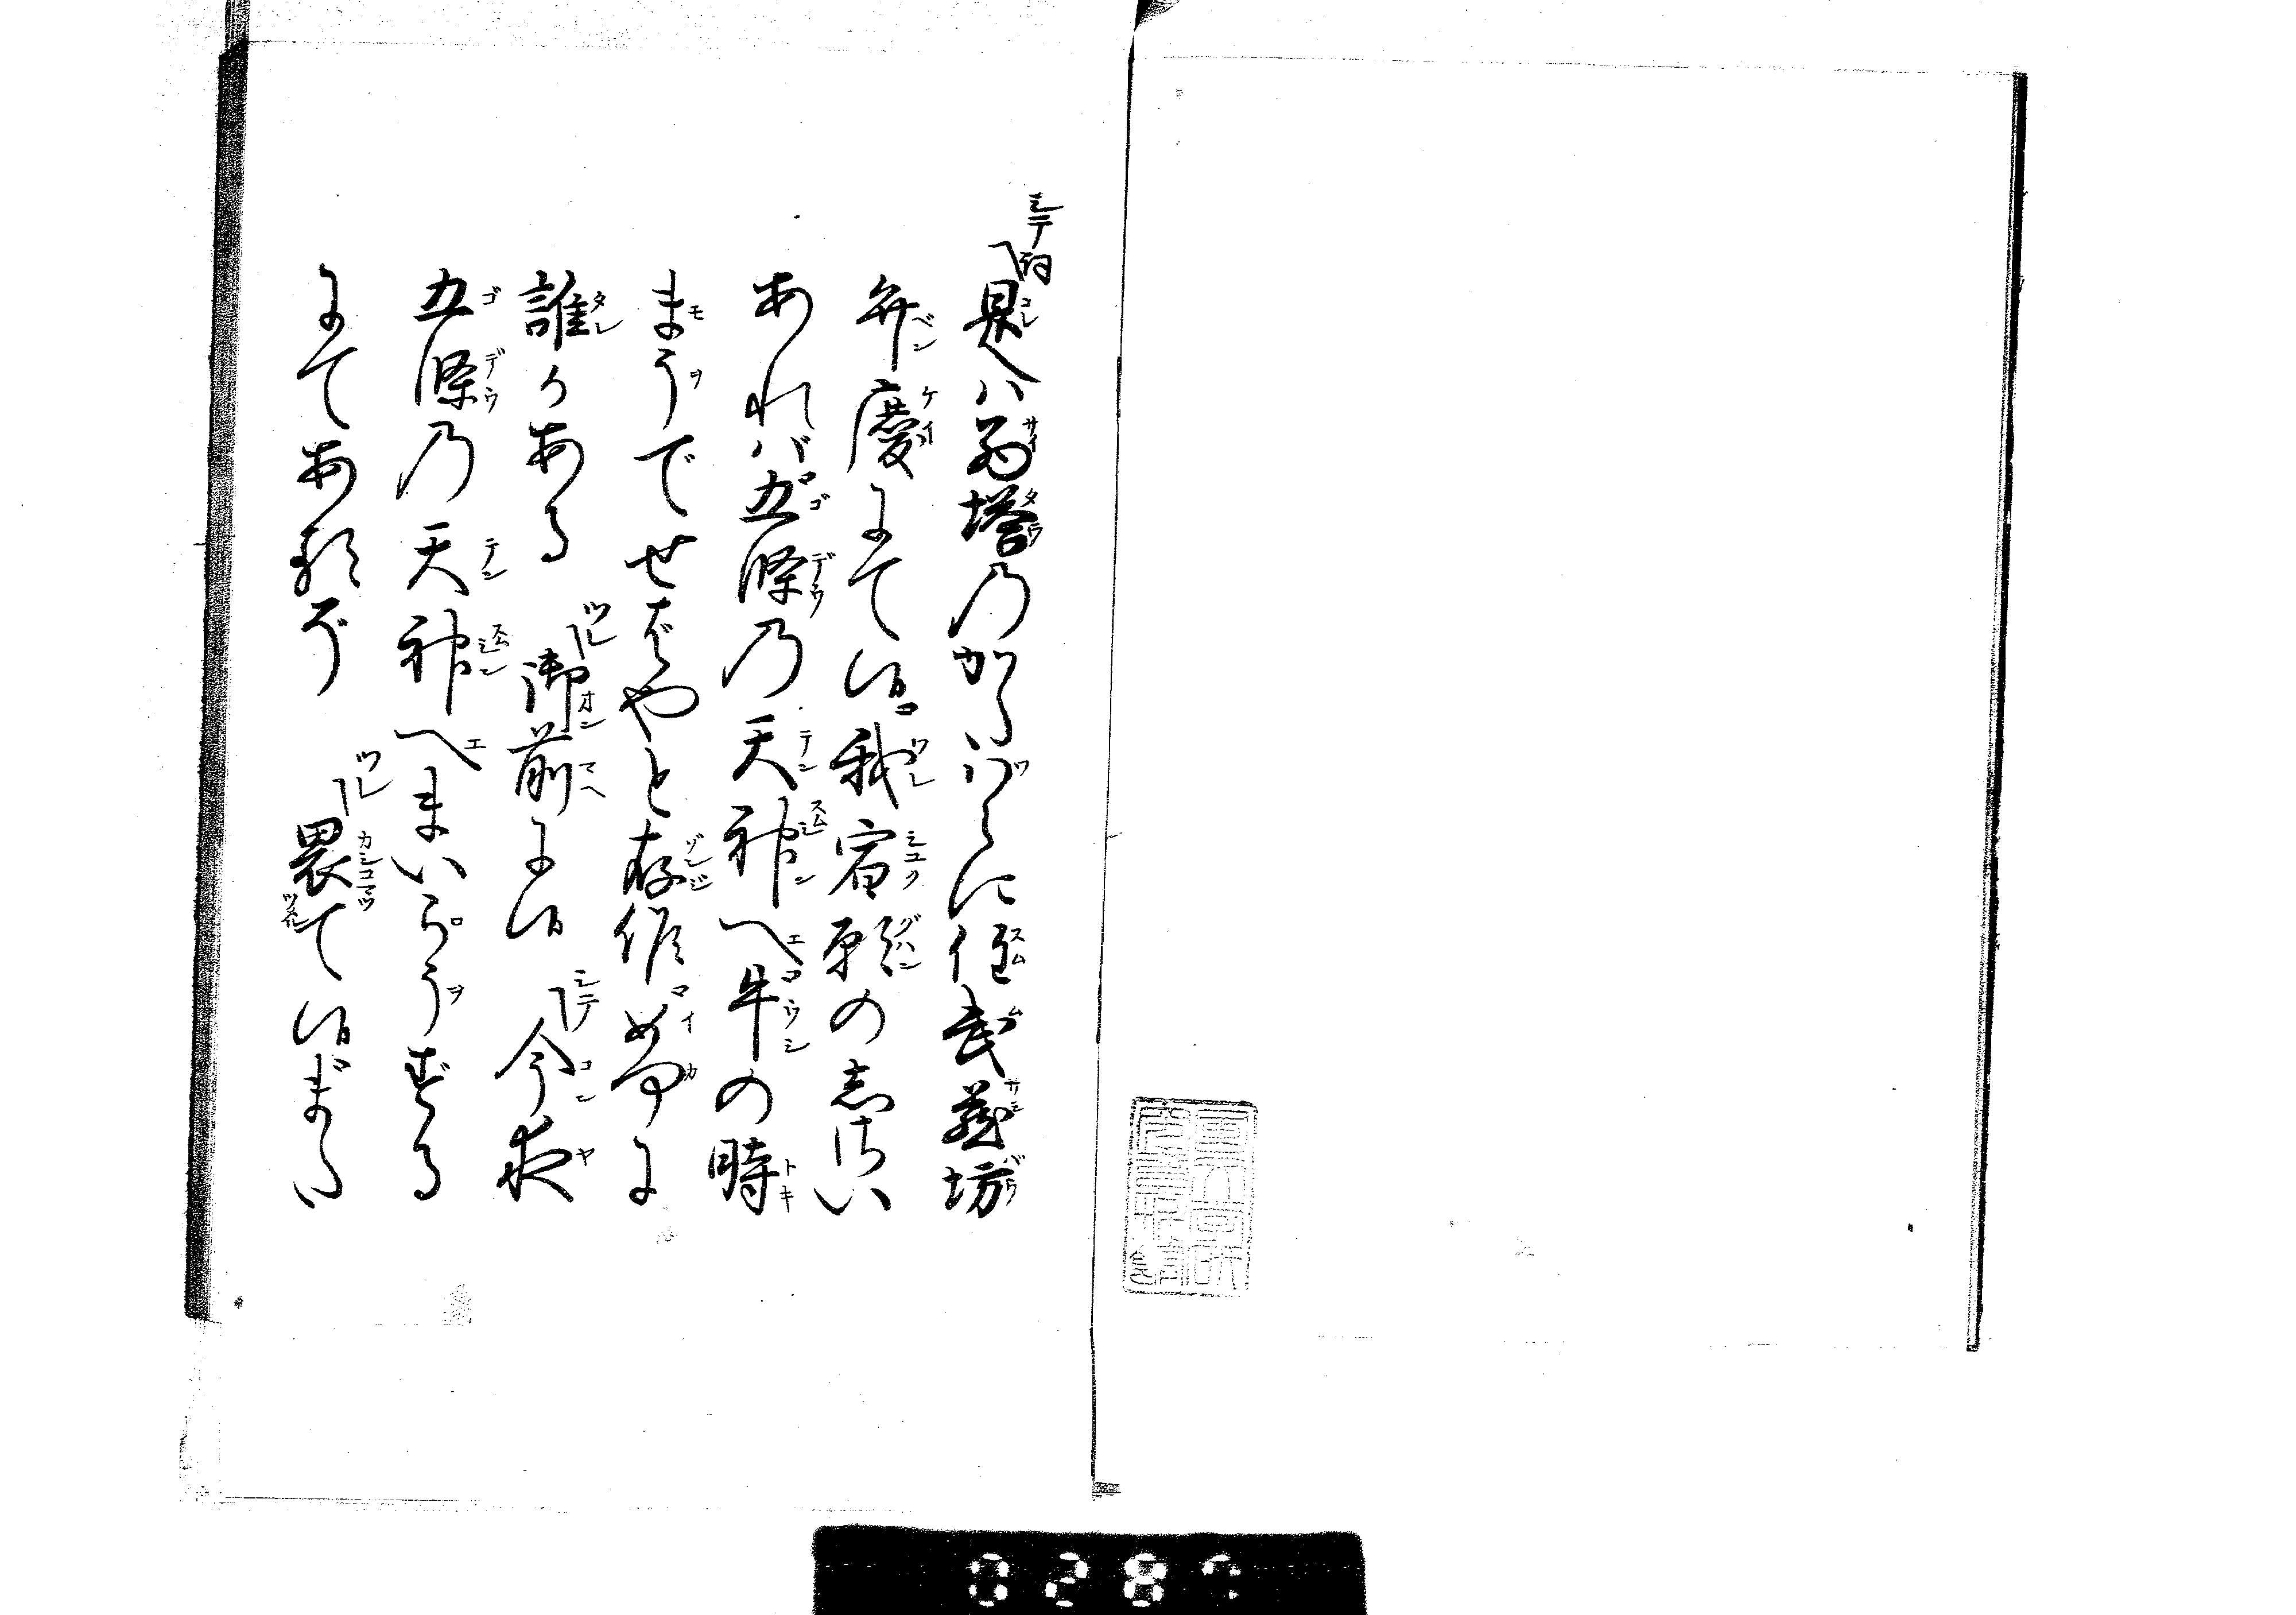 シテ詞 是ハ西塔乃かたハらに住武蔵坊
弁慶にて候我宿願の志候い
あれバ五條乃天神へ丑の時
まうでせばやと存候如何に
誰かある ツレ 御前に候 シテ 今夜
五條乃天神へまいらうずる
にてあるぞ ツレ 畏て候まい
0287